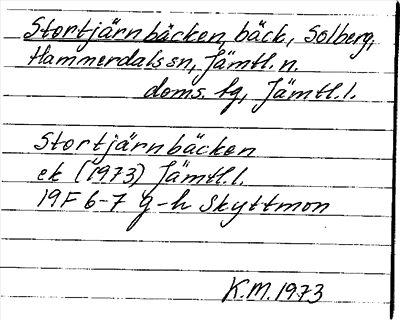 Stortjärnbäcken, bäck, Solberg,
Hammerdals sn, Jämtl. n.
doms. hg, Jämtl. l.
Stortjärnbäcken
ek (1973) Jämtl. l.
19F 6-7 g-h Skyttmon
K.M. 1973